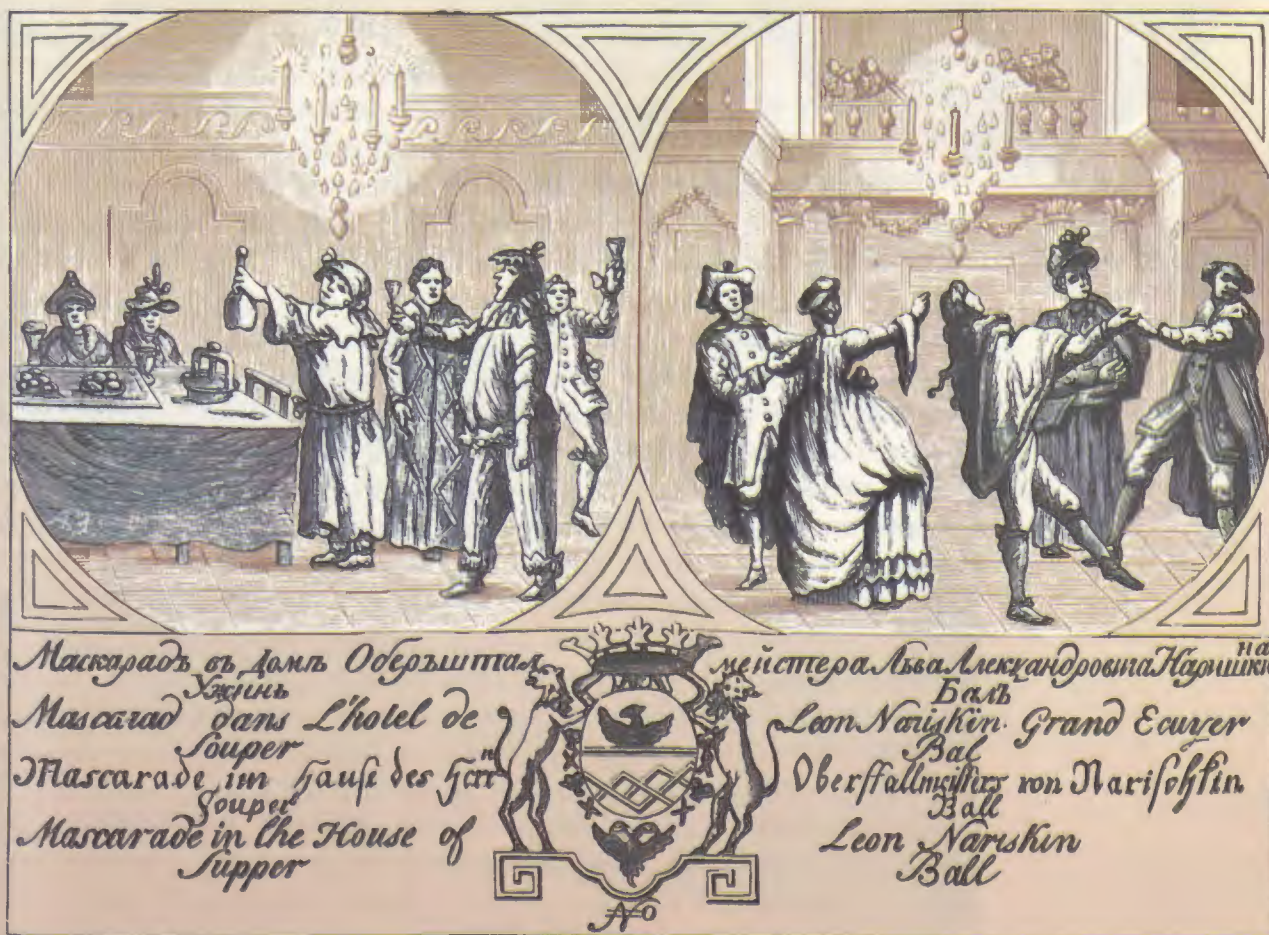 Маскарадъ въ Домѣ Оберъштал мейстера Льва Александровича Наришкина
Ужинъ Балъ
Mascarad dans L'hotel de Leon Nariskin Grand Ecuyer
Souper Bal
Mascarade im Hause des Herrn Oberstallmeisters von Narischkin
Souper Ball
Mascarade in the House of Leon Nariskin
Supper Ball
No